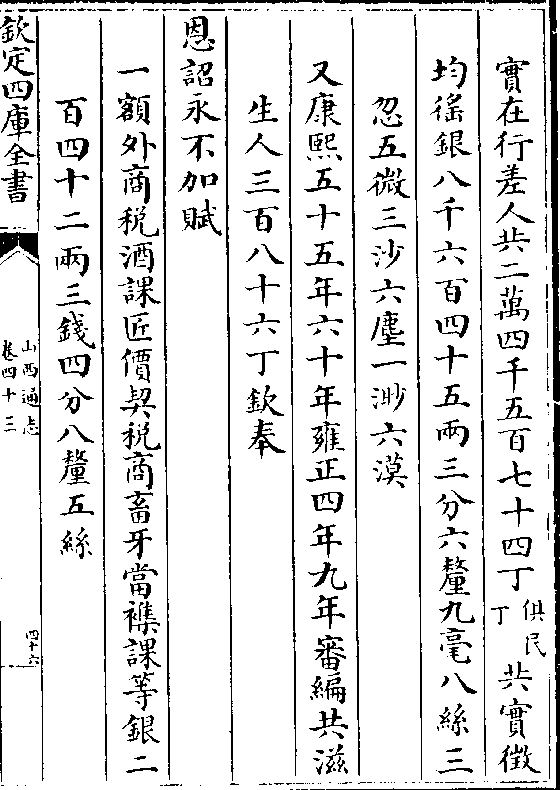 實在行差人共二萬四千五百七十四丁俱民丁共實徵
均徭銀八千六百四十五兩三分六釐九毫八絲三
忽五微三沙六塵一渺六漠
又康熙五十五年六十年雍正四年九年審編共滋
生人三百八十六丁欽奉
恩詔永不加賦
一額外商稅酒課匠價契稅商畜牙當襍課等銀二
百四十二兩三錢四分八釐五絲
欽定四庫全書
山西通志
卷四十三
四十六